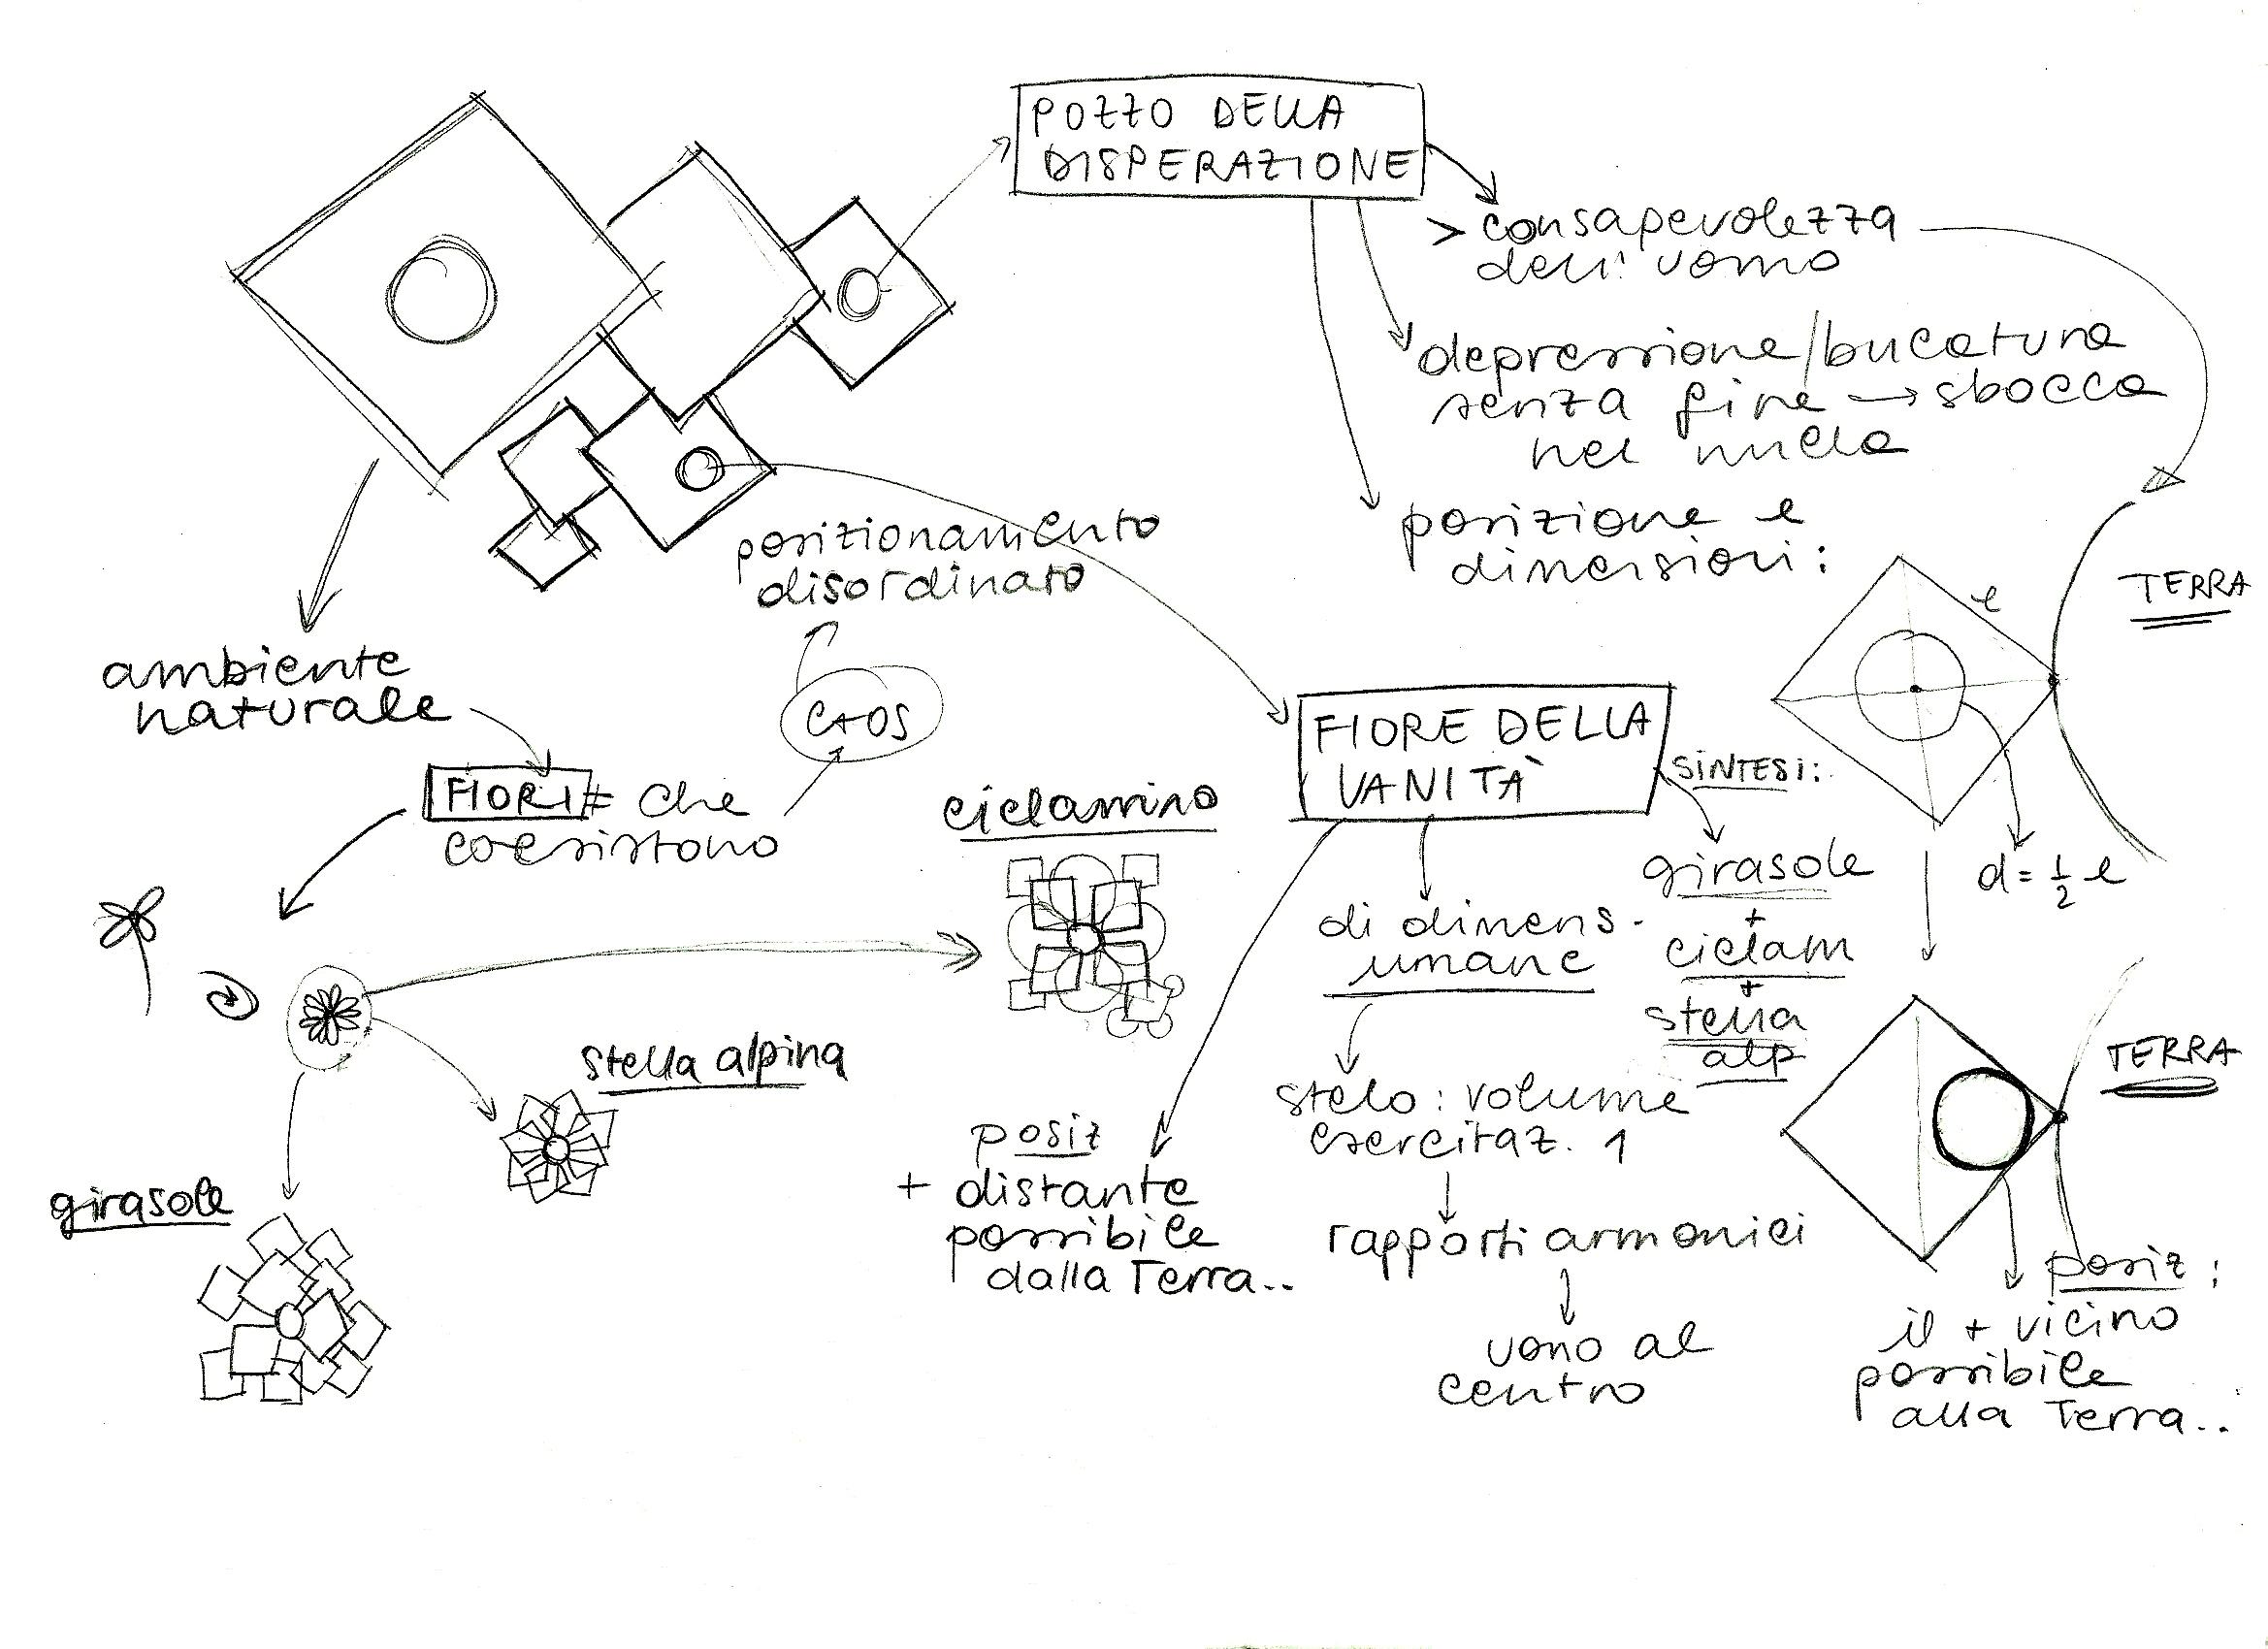 POZZO DELLA
DISPERAZIONE
> consapevolezza
dell'uomo
depressione/bucatura
senza fine → sbocca
nel nulla
posizione e
dimensioni:
l
TERRA
d = 1/2 l
TERRA
posiz:
il + vicino
possibile
alla Terra..
posizionamento
disordinato
CAOS
ambiente
naturale
FIORI ≠ che
coesistono
ciclamino
stella alpina
girasole
FIORE DELLA
VANITÀ
SINTESI:
girasole
+
ciclam
+
stella
alp
di dimens.
umane
stelo: volume
esercitaz. 1
rapporti armonici
uomo al
centro
posiz
+ distante
possibile
dalla Terra..